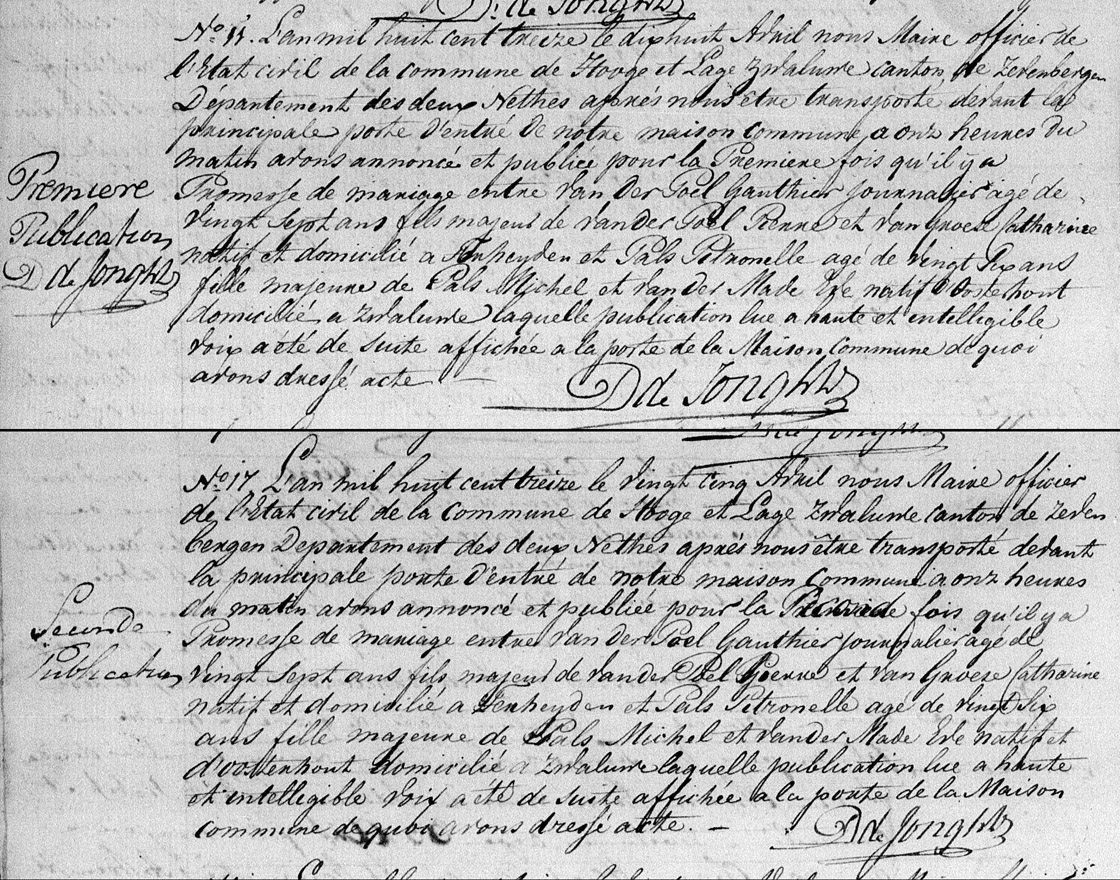 D. de Jongh
No 11. L'an mil huit cent treize le dix huit Avril nous Maire officier de
l'Etat civil de la commune de Hooge et Lage Zwaluwe canton de Zevenbergen
Département des deux Nethes après nous être transporté devant la
principale porte d'entré de notre maison commune a onz heures du
matin avons annoncé et publiée pour la Premiere fois qu'il y a
Promesse de mariage entre Van Der Poel Gauthier journalier agé de
vingt sept ans fils majeur de van der Poel Pierre et van Groese Catharine
natif et domicilié a Terheyden et Pals Petronelle agé de vingt six ans
fille majeure de Pals Michel et van der Made Eve natif d'Oosterhout
domicilié a Zwaluwe laquelle publication lue a haute et intelligible
voix a été de suite affichée a la porte de la Maison Commune de quoi
avons dressé acte
D de Jongh
Premiere
Publication
D de Jongh
D de Jongh
No 17 L'an mil huit cent treize le vingt cinq Avril nous Maire officier
de l'Etat civil de la commune de Hooge et Lage Zwaluwe canton de Zeven
bergen Departement des deux Nethes après nous être transporté devant
la principale porte d'entré de notre maison commune a onz heures
du matin avons annoncé et publiée pour la Seconde fois qu'il y a
Promesse de mariage entre Van der Poel Gauthier journalier agé de
vingt sept ans fils majeur de van der Poel Pierre et van Groese Catharine
natif et domicilié a Terheyden et Pals Petronelle agé de vingt six
ans fille majeure de Pals Michel et van der Made Eve natif et
d'oosterhout domicilié a Zwaluwe laquelle publication lue a haute
et intelligible voix a été de suite affichée a la porte de la Maison
commune de quoi avons dressé acte. —
D de Jongh
Seconde
Publication